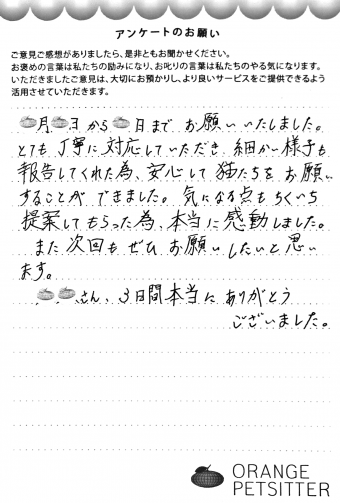 アンケートのお願い
ご意見ご感想がありましたら、是非ともお聞かせください。
お褒めの言葉は私たちの励みになり、お叱りの言葉は私たちのやる気になります。
いただきましたご意見は、大切にお預かりし、より良いサービスをご提供できるよう
活用させていただきます。
月 日から 日まで お願いいたしました。
とても丁寧に対応していただき 細かい様子も
報告してくれた為、安心して 猫たちを お願い
することが できました。気になる点もちくいち
提案してもらった為、本当に 感動しました。
また次回も ぜひ お願いしたいと思い
ます。
さん、3日間本当に ありがとう
ございました。
ORANGE
PETSITTER